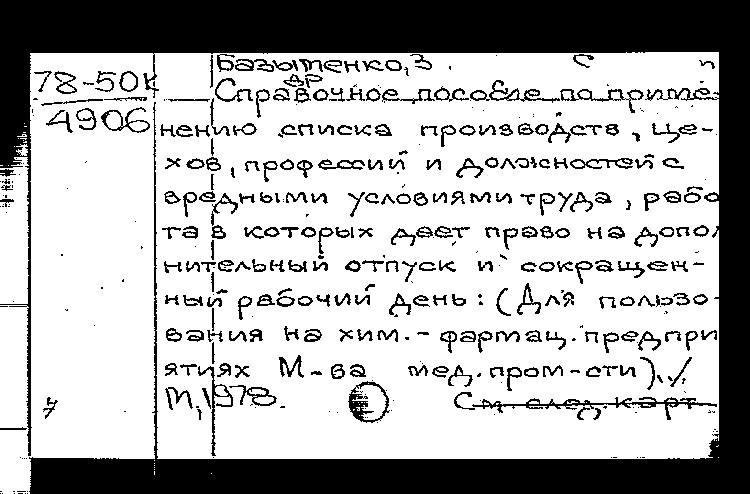 Базытенко, З. С п
78-50к др
Справочное пособие по приме-
4906 нению списка производств, це-
хов, профессий и должностей с
вредными условиями труда, рабо
та в которых дает право на допол
нительный отпуск и сокращен-
ный рабочий день: (Для пользо-
вания на хим.-фармац. предпри
ятиях М-ва мед. пром-сти)./
М, 1978. См. след. карт